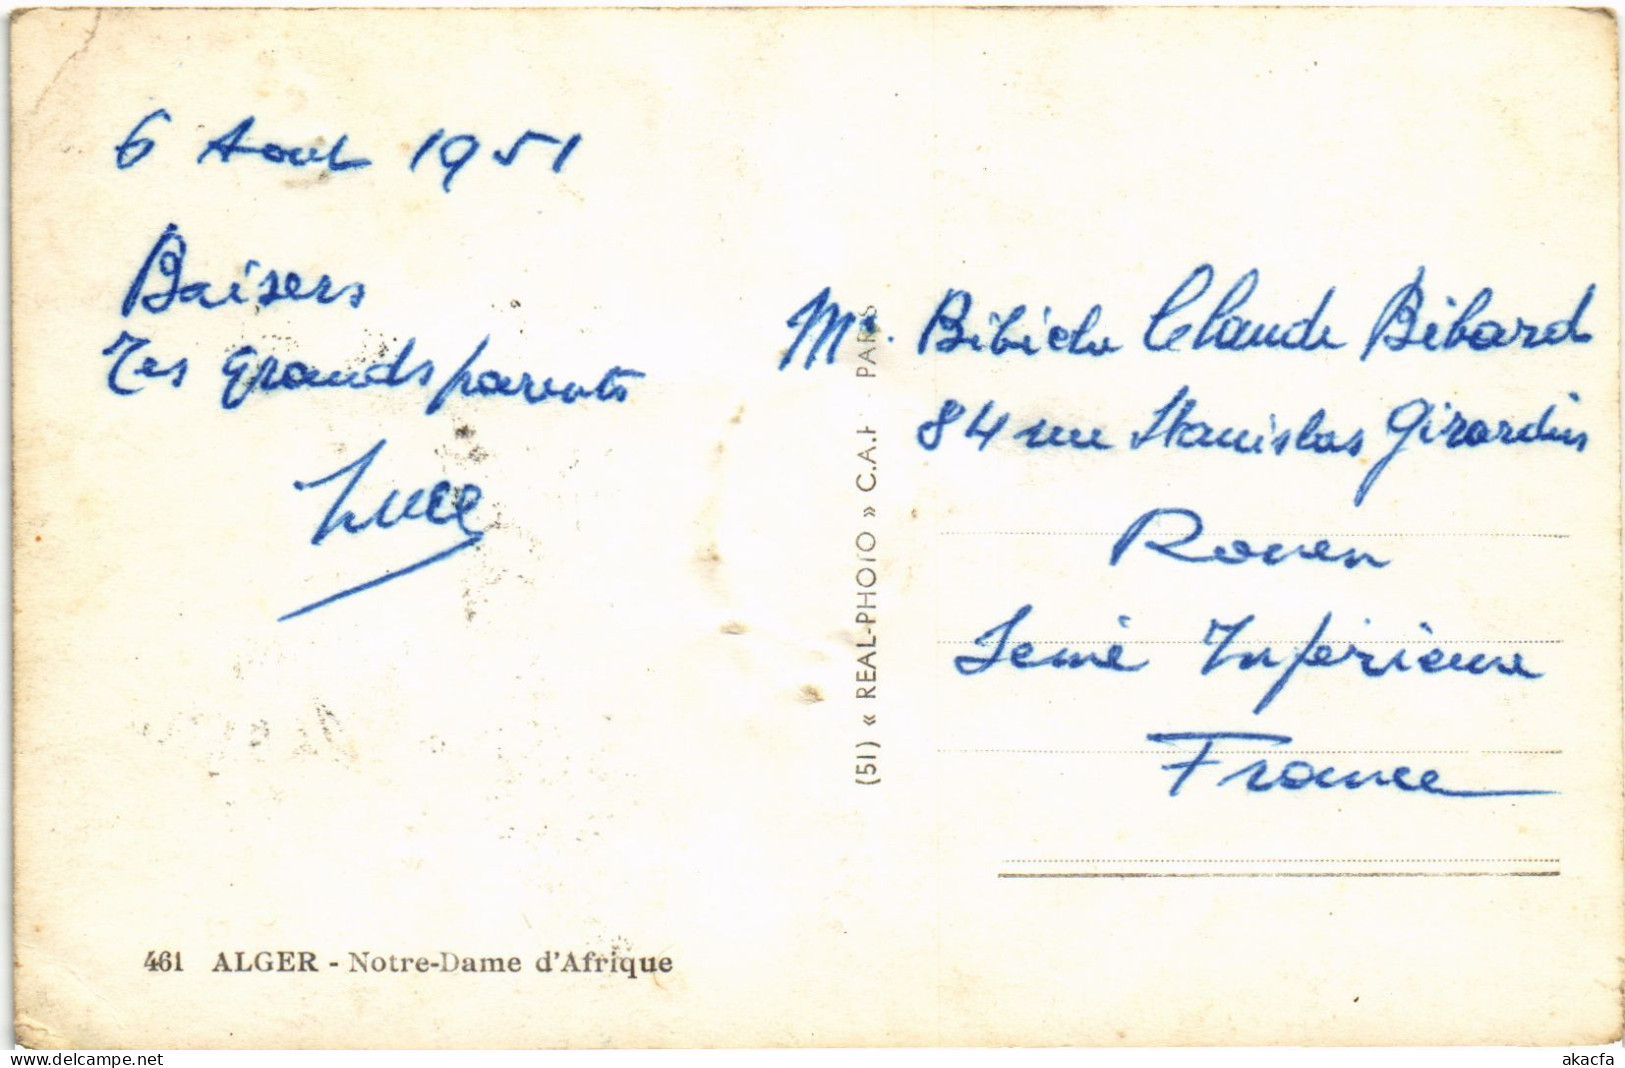 6 Aout 1951
Baisers
Tes grands parents
Luce
Mr. Bibiche Claude Bibard
84 rue Stanislas Girardin
Rouen
Seine Inférieure
France
(51) « REAL-PHOTO » C.A.P. - PARIS
461 ALGER - Notre-Dame d'Afrique
delcampe.net
akacfa